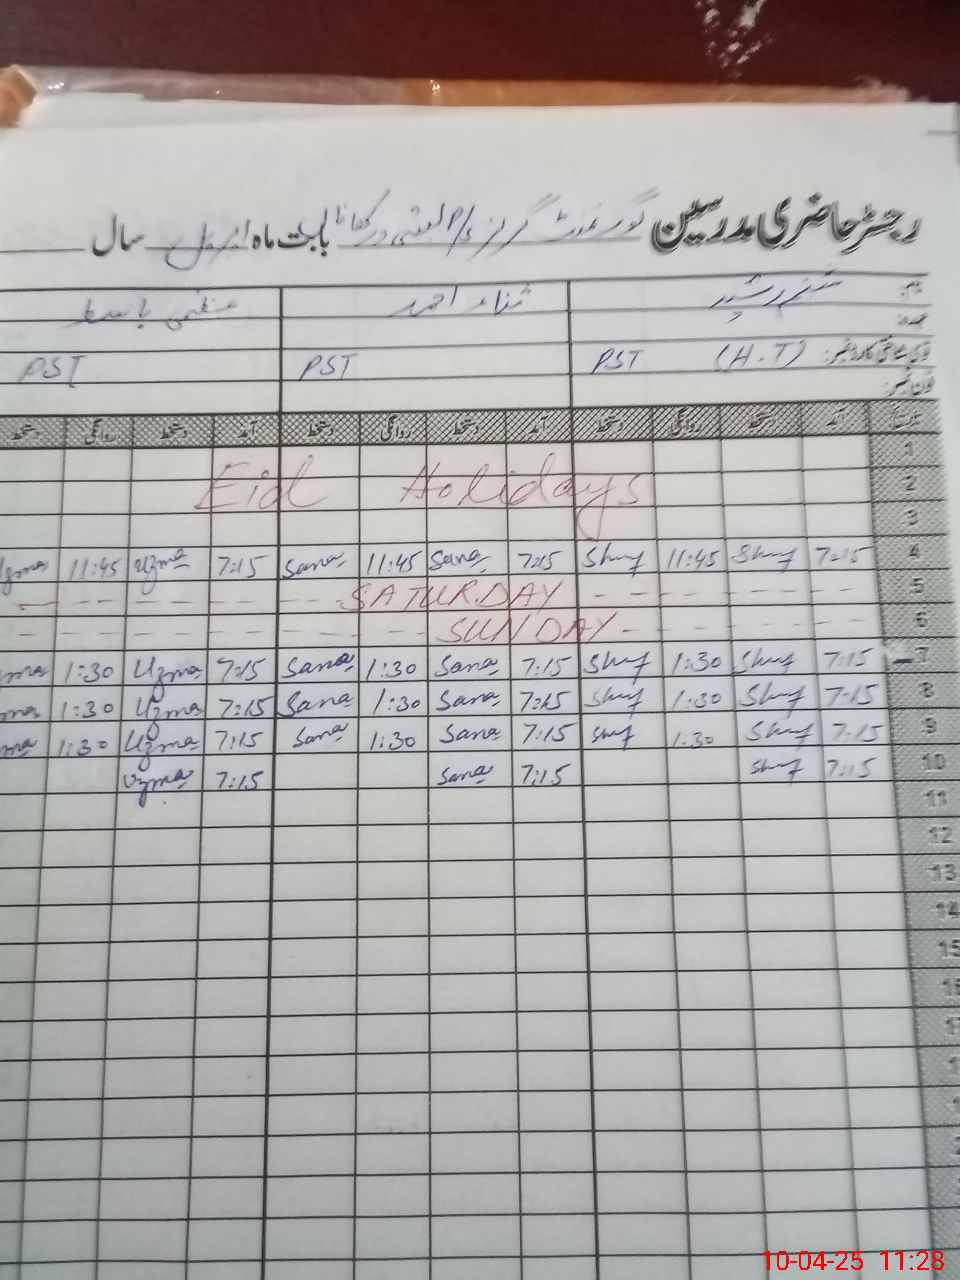 رجسٹر حاضری مدرسین گورنمنٹ گرلز بابت ماہ اپریل سال
نام: ثناء احمد عظمیٰ باسط
عہدہ:
قومی شناختی کارڈ نمبر: (H.T) PST PST PST
فون نمبر:
تاریخ آمد دستخط روانگی دستخط آمد دستخط روانگی دستخط آمد دستخط روانگی دستخط
1
2 Eid Holidays
3
4 7:15 Shuf 11:45 Shuf 7:15 Sana 11:45 Sana 7:15 Uzma 11:45
5 SATURDAY
6 SUNDAY
7 7:15 Shuf 1:30 Shuf 7:15 Sana 1:30 Sana 7:15 Uzma 1:30
8 7:15 Shuf 1:30 Shuf 7:15 Sana 1:30 Sana 7:15 Uzma 1:30
9 7:15 Shuf 1:30 Shuf 7:15 Sana 1:30 Sana 7:15 Uzma 1:30
10 7:15 Shuf 7:15 Sana 7:15 Uzma
11
12
13
14
15
10-04-25 11:28